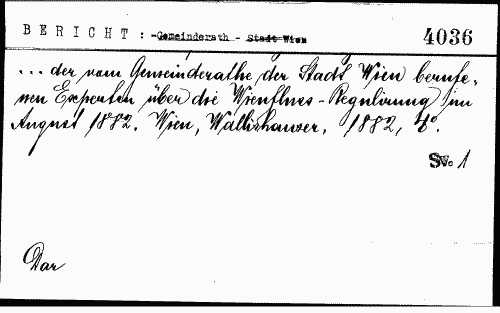 BERICHT: -Gemeinderath - Stadt Wien
4036
... der vom Gemeinderathe der Stadt Wien berufe-
nen Experten über die Wienfluss-Regulirung im
August 1882. Wien, Wallishausser, 1882, 4°.
Sv. 1
Dar